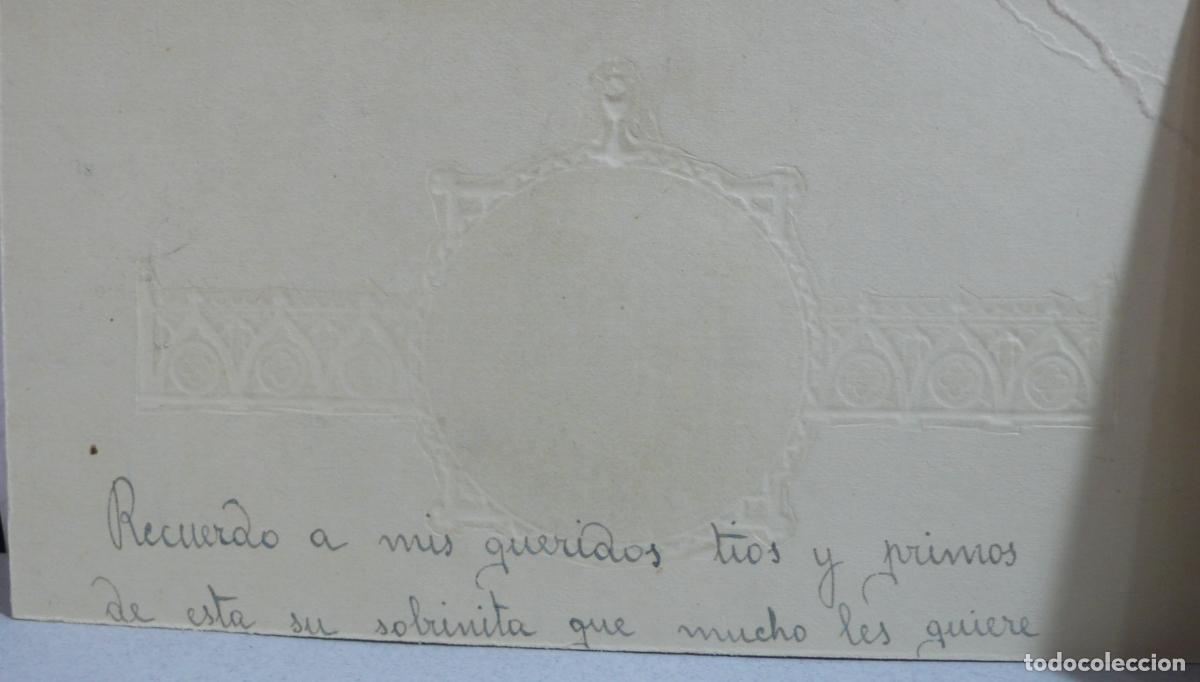 Recuerdo a mis queridos tios y primos
de esta su sobrinita que mucho les quiere
todocoleccion